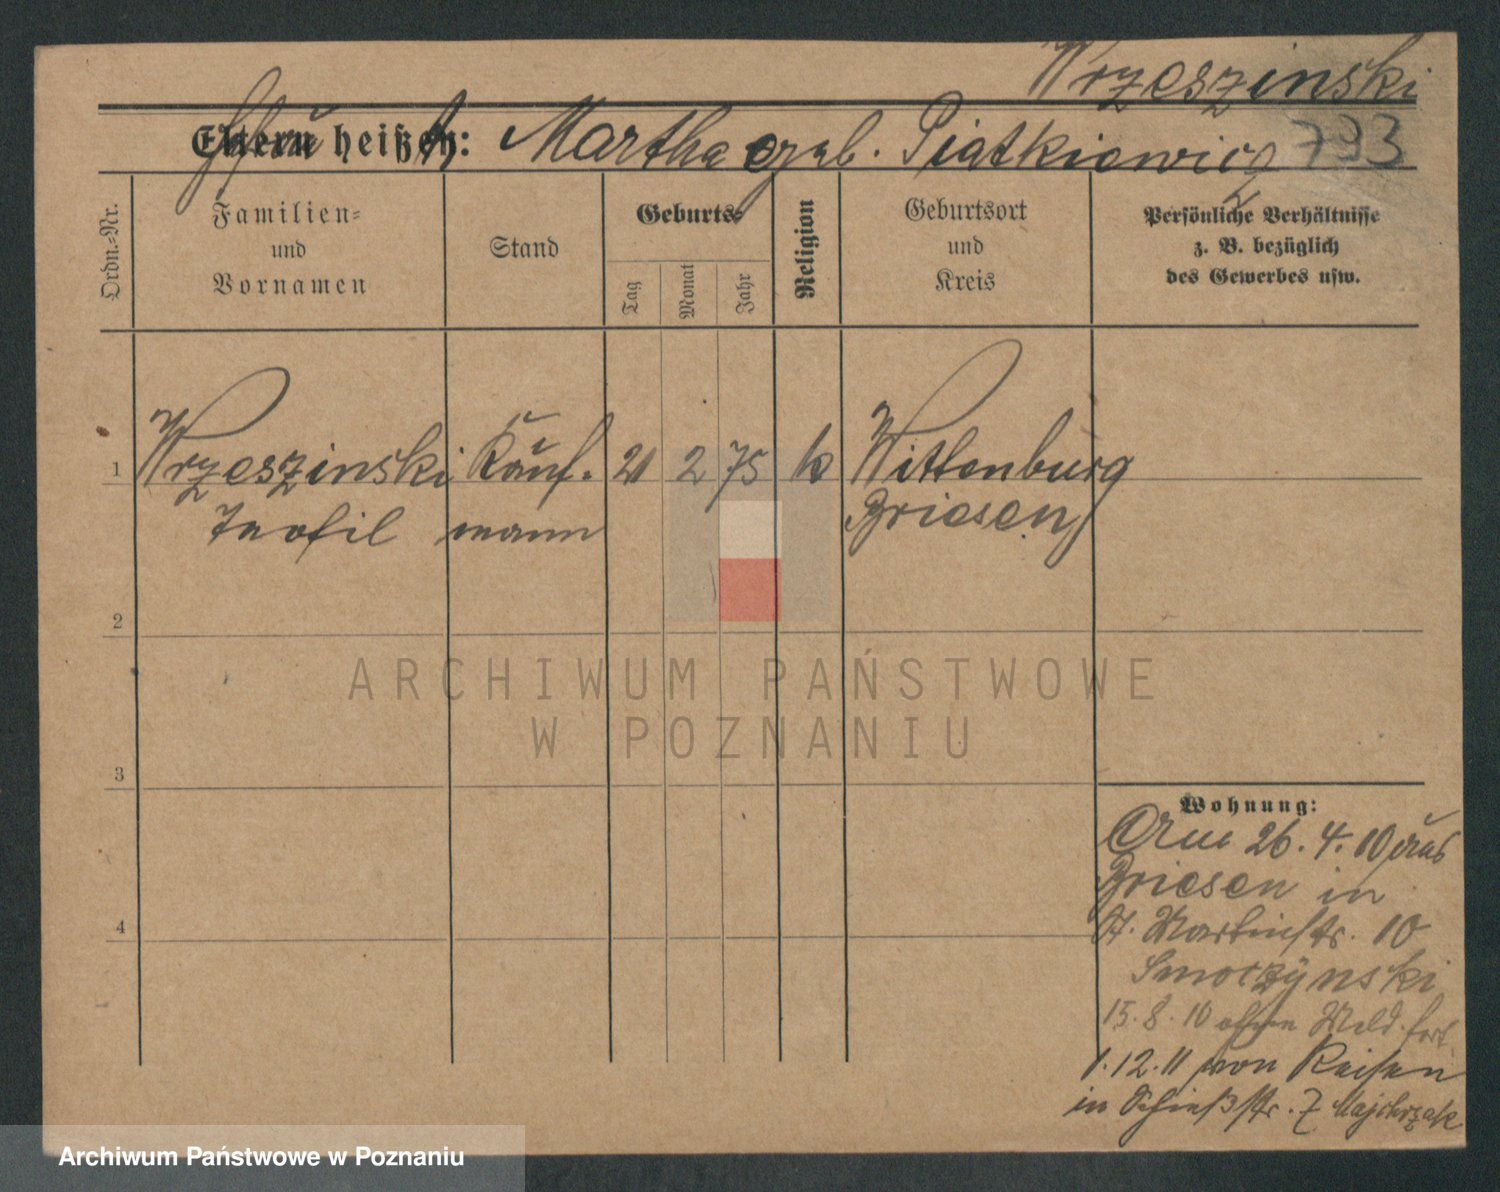 Wrzeszinski
Eltern heißen: Martha geb. Piatkiewicz 793
Ordn.-Nr.
Familien-
und
Vornamen
Stand
Geburts-
Tag
Monat
Jahr
Religion
Geburtsort
und
Kreis
Persönliche Verhältnisse
z. B. bezüglich
des Gewerbes usw.
1 Wrzeszinski Kauf- 21 2 75 k Wittenburg
Teofil mann Briesen
2
3
4
Wohnung:
26.4.10 aus
Briesen in
St. Martinstr. 10
Smoczynski
15.8.10 ohne Meld. fort.
1.12.11 von Reisen
in Schießstr. 7 Majchrzak
ARCHIWUM PAŃSTWOWE
W POZNANIU
Archiwum Państwowe w Poznaniu